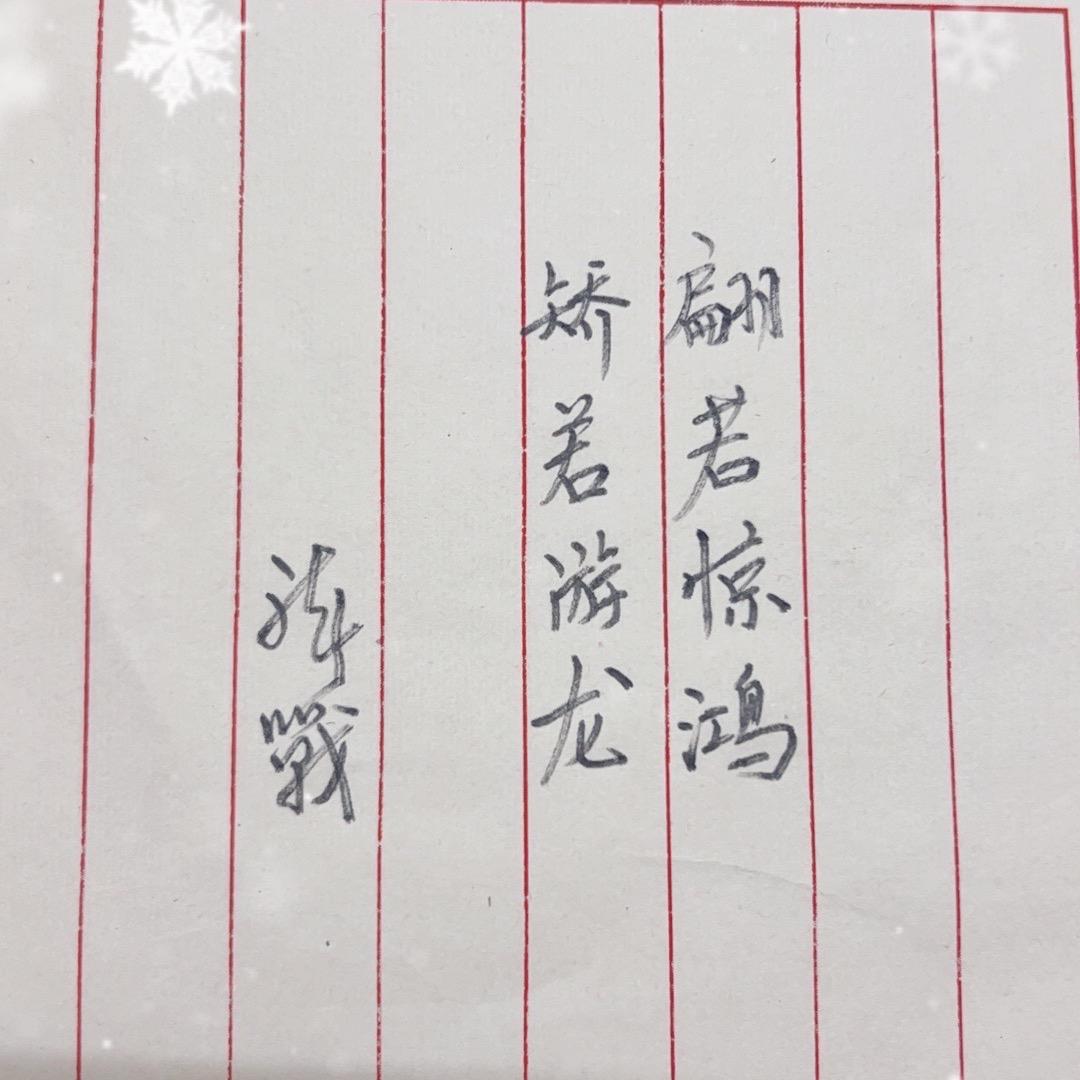 翩若惊鸿
矫若游龙
戰